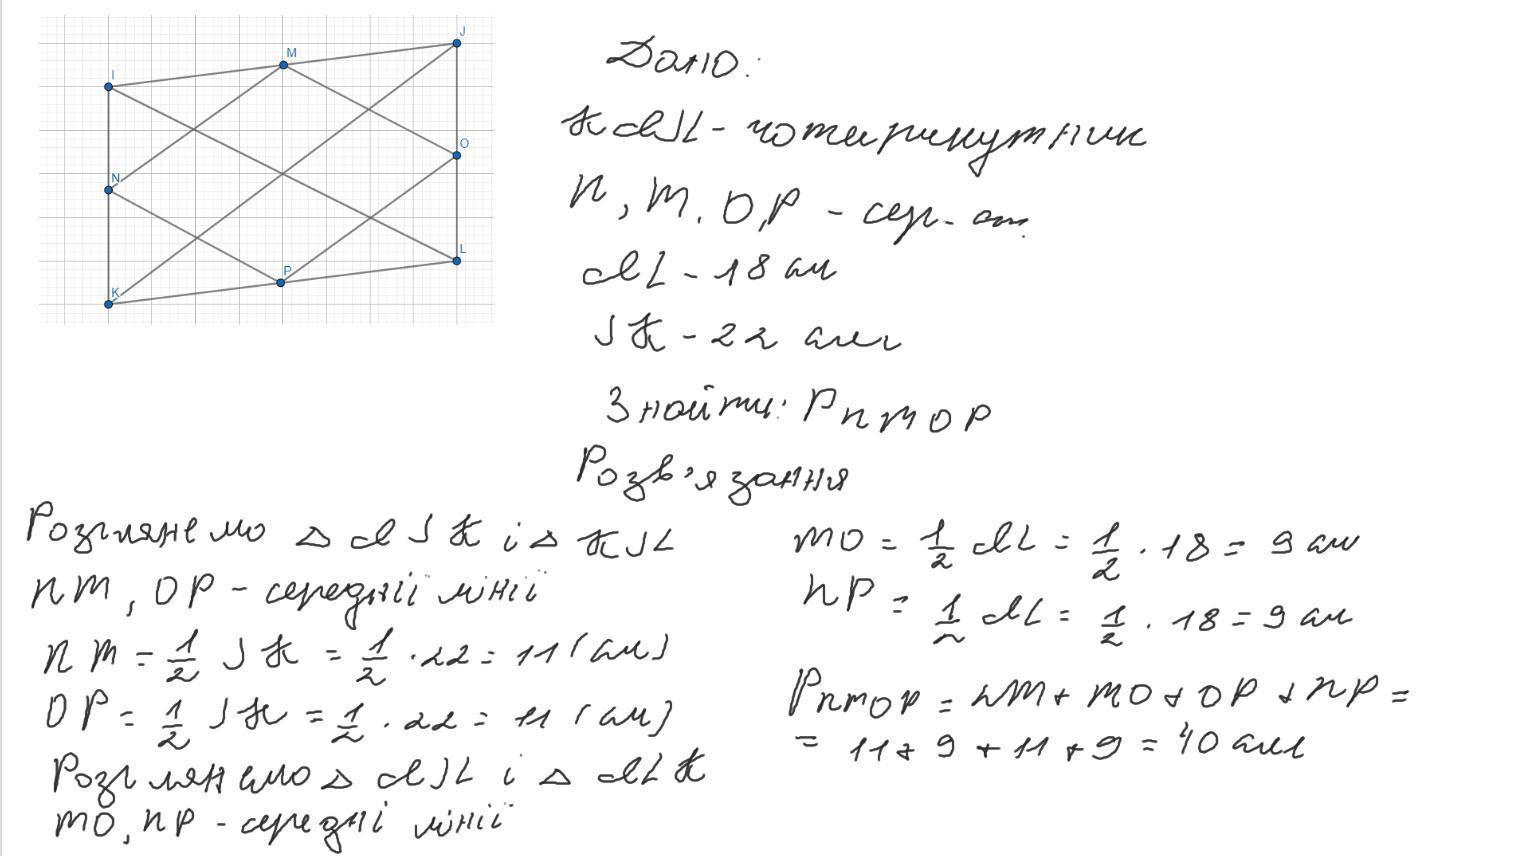 J
M
I
O
N
L
P
K
Дано:
KIJL - чотирикутник
N, M, O, P - сер. ст.
IL - 18 см
JK - 22 см
Знайти: P NMOP
Розв'язання
Розглянемо △ IJK і △ KJL
NM, OP - середнії лінії
NM = 1/2 JK = 1/2 · 22 = 11 (см)
OP = 1/2 JK = 1/2 · 22 = 11 (см)
Розглянемо △ IJL і △ ILK
MO, NP - середні лінії
MO = 1/2 IL = 1/2 · 18 = 9 см
NP = 1/2 IL = 1/2 · 18 = 9 см
P NMOP = NM + MO + OP + NP =
= 11 + 9 + 11 + 9 = 40 см